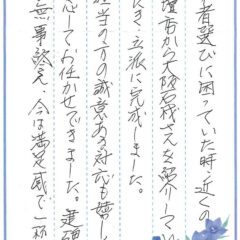 者選びに困っていた時、近くの
壇市から大阪石材さんを紹介してい
だき、立派に完成しました。
担当の方の誠意ある対応も嬉し
心してお任せできました。建
無事終え、今は満足感で一杯